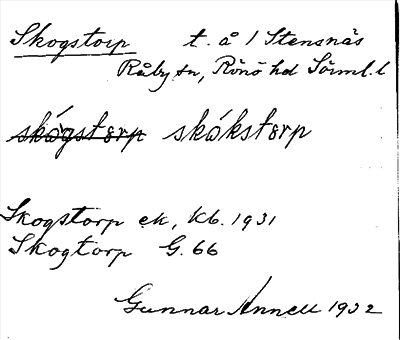 Skogstorp t. å 1 Stensnäs
Råby sn, Rönö hd Sörml. l
skógstorp skókstorp
Skogstorp ek, Kb. 1931
Skogtorp G. 66
Gunnar Annell 1932